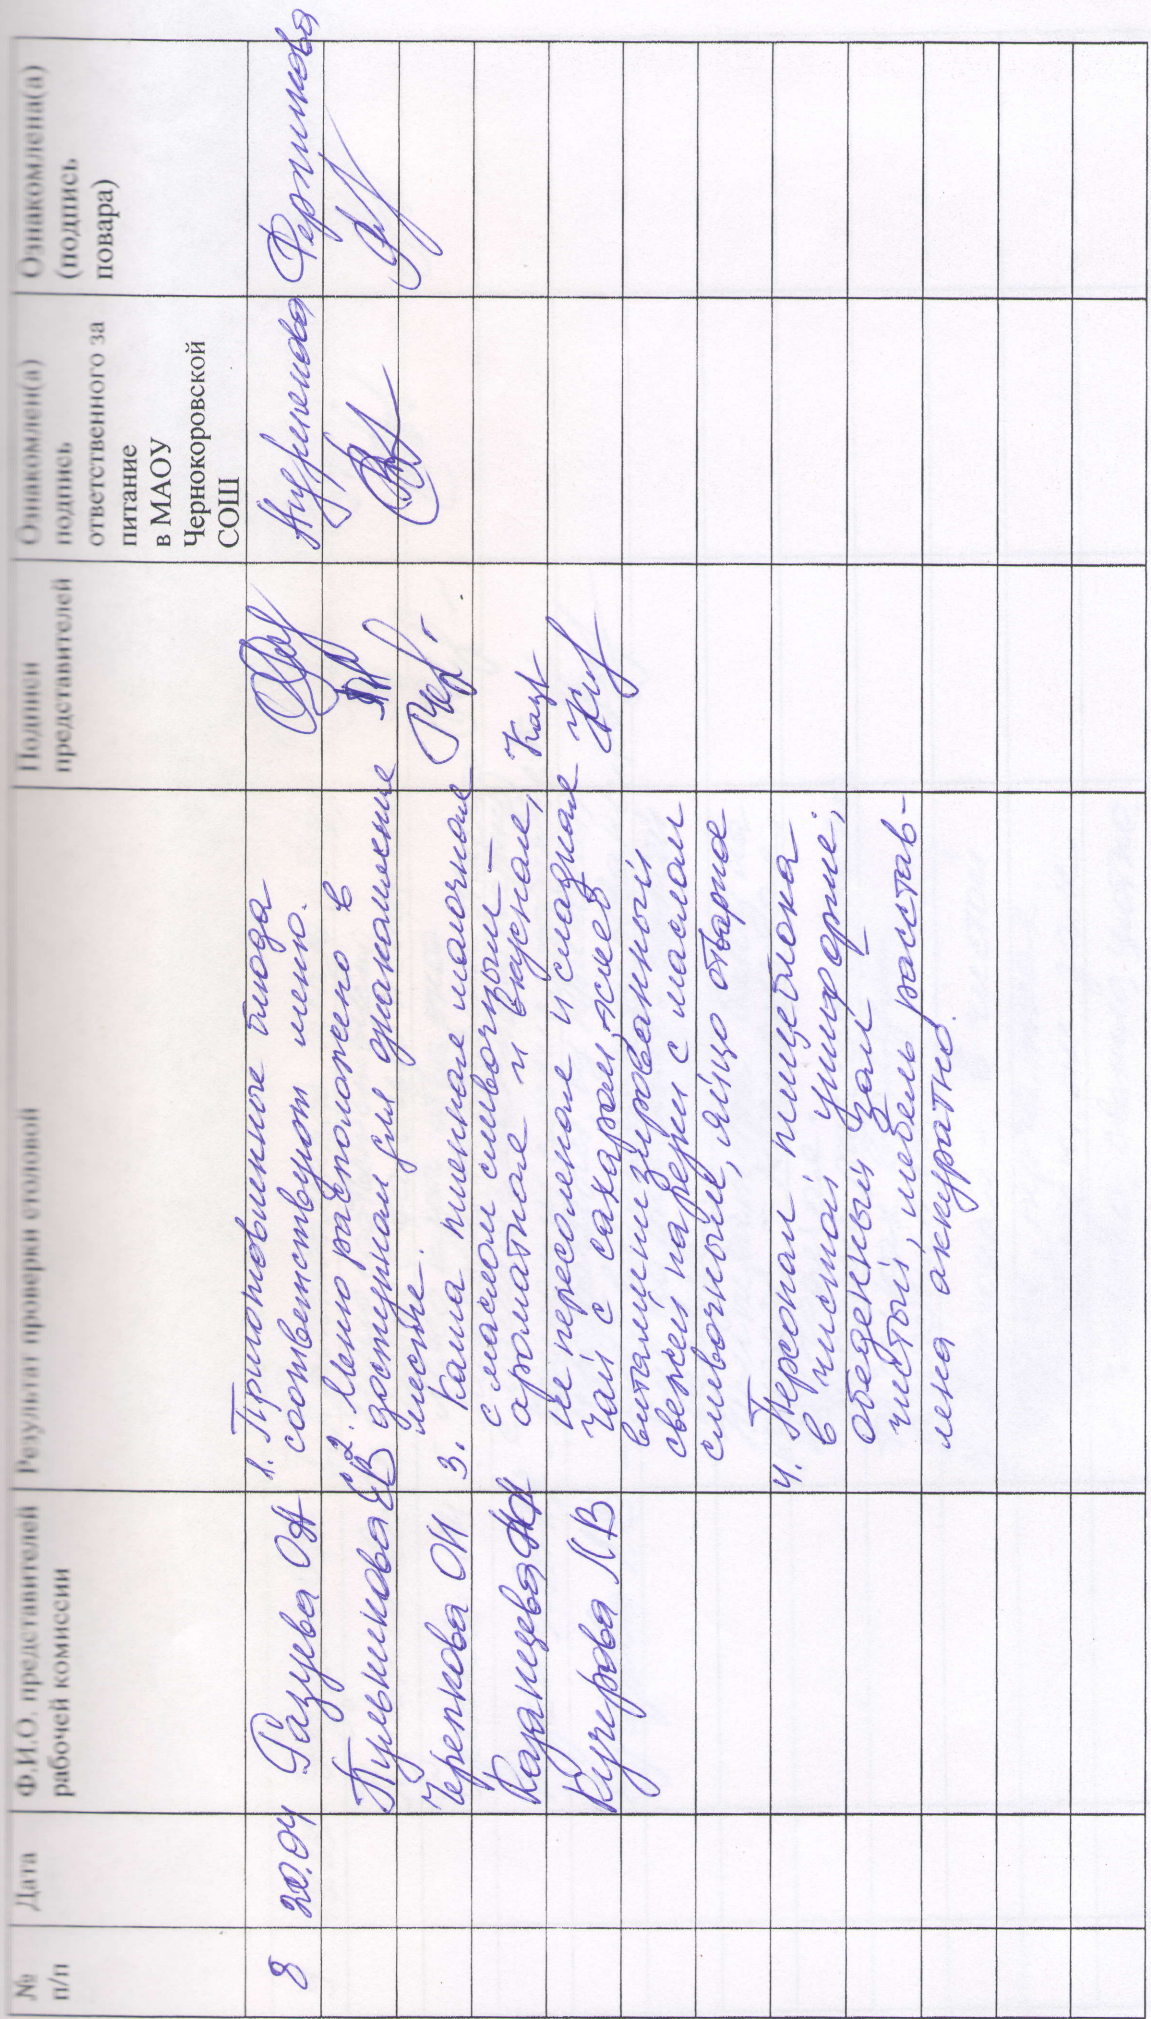 №
п/п
Дата
Ф.И.О. представителей
рабочей комиссии
Результат проверки столовой
Подписи
представителей
Ознакомлен(а)
подпись
ответственного за
питание
в МАОУ
Чернокоровской
СОШ
Ознакомлена(а)
(подпись
повара)
8
20.04
Разуева ОА
Пульникова ЕВ
Черепкова ОИ
Казанцева
Кучерова ЛВ
1. Приготовленные блюда
соответствуют меню.
2. Меню расположено в
доступном для ознакомление
месте.
3. Каша пшенная молочная
с маслом сливочным –
ароматная и вкусная,
не пересоленая и сладкая
чай с сахаром, хлеб
витаминизированный
свежей нарезки с маслом
сливочным, яйцо отварное
4. Персонал пищеблока
в чистой униформе;
обеденный зал –
чистый, мебель расстав-
лена аккуратно.